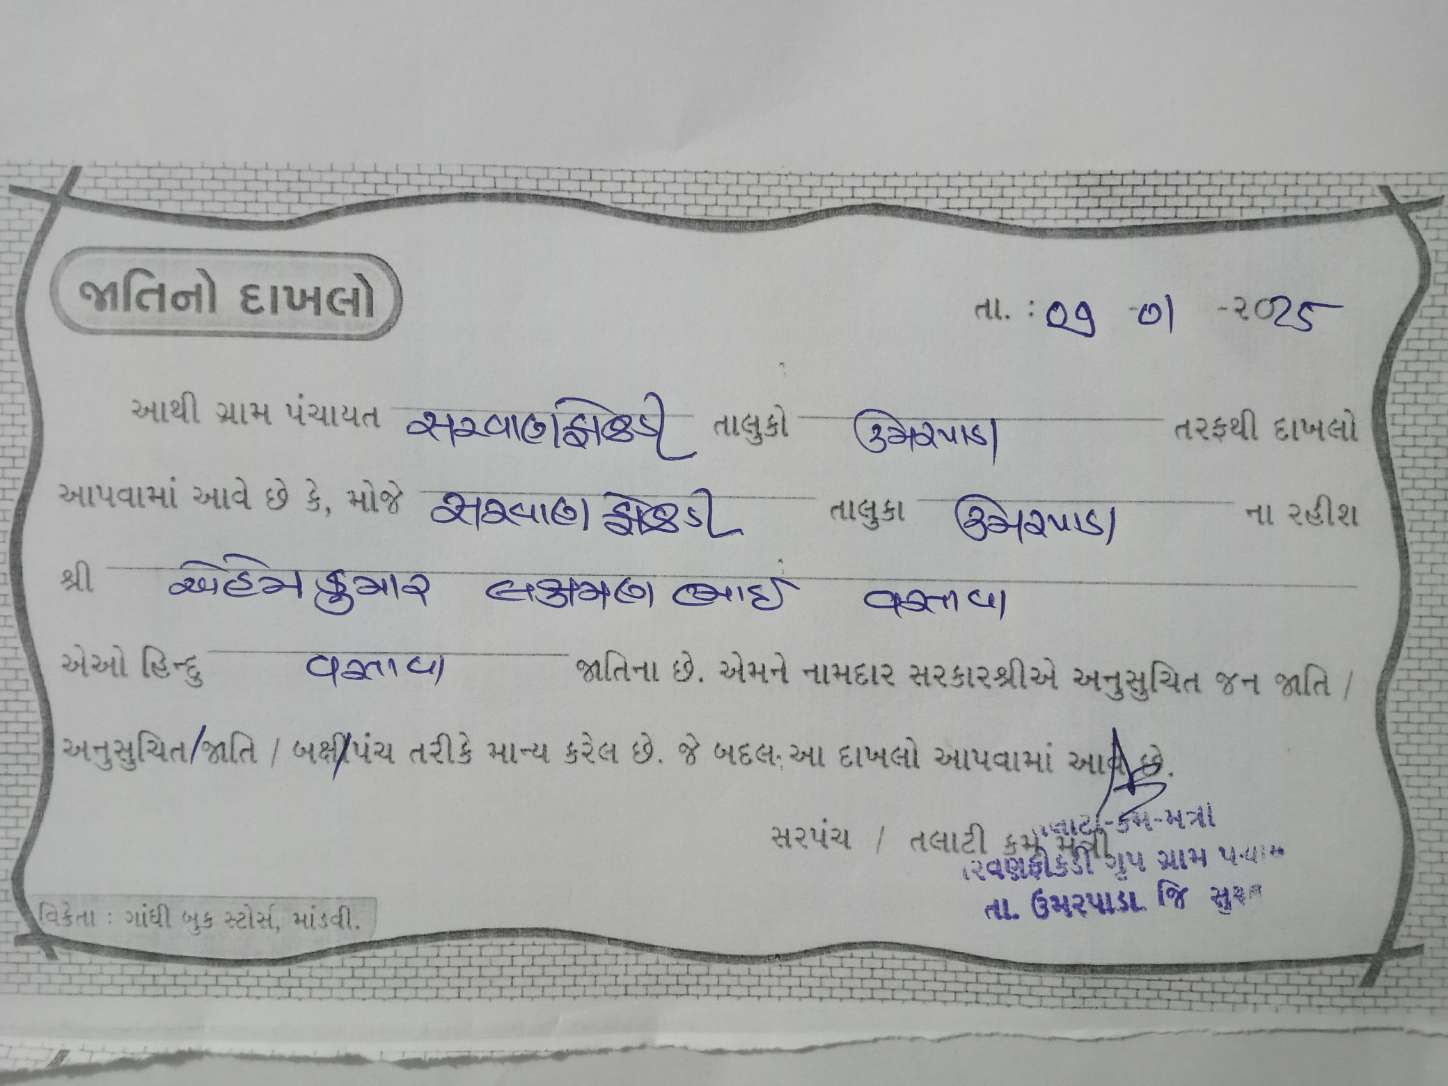 જાતિનો દાખલો
તા. : ૦૧ -૦1 -૨૦25
આથી ગ્રામ પંચાયત સરવાણફોકડી તાલુકો ઉમરપાડા તરફથી દાખલો
આપવામાં આવે છે કે, મોજે સરવાણ ફોકડી તાલુકા ઉમરપાડા ના રહીશ
શ્રી કુમાર લક્ષ્મણ ભાઈ વસાવા
એઓ હિન્દુ વસાવા જાતિના છે. એમને નામદાર સરકારશ્રીએ અનુસુચિત જન જાતિ /
અનુસુચિત/જાતિ / બક્ષી/પંચ તરીકે માન્ય કરેલ છે. જે બદલ આ દાખલો આપવામાં આવે છે.
સરપંચ / તલાટી કમ મંત્રી
તલાટી-કમ-મંત્રી
ગ્રુપ ગ્રામ પંચાયત
તા. ઉમરપાડા. જિ સુરત
વિક્રેતા : ગાંધી બુક સ્ટોર્સ, માંડવી.